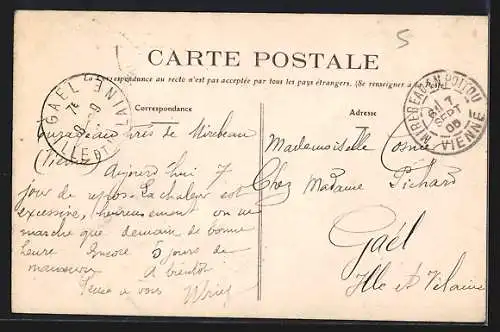 5
CARTE POSTALE
La Correspondance au recto n'est pas acceptée par tous les pays étrangers. (Se renseigner à la Poste)
Correspondance
Adresse
GAEL
ILLE ET VILAINE
MIREBEAU EN POITOU
7
SEPT
VIENNE
près de Mirebeau
(Vienne) Aujourd'hui 7
jour de repos. La chaleur est
excessive, heureusement on ne
marche que demain de bonne
heure Encore 5 jours de
manœuvre A bientôt
Pense à vous
Mademoiselle
Chez Madame Pichard
Gaël
Ille et Vilaine